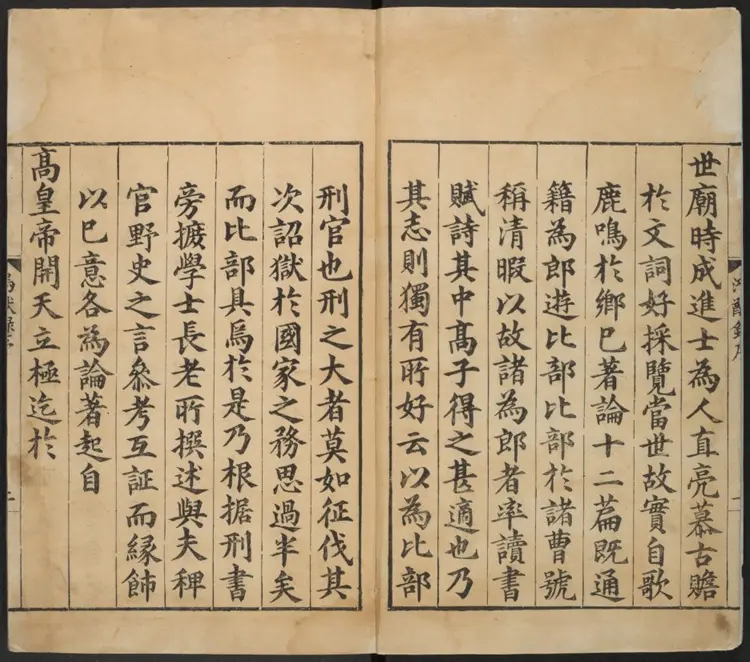 世廟時成進士為人直亮慕古贍
於文詞好採覽當世故實自歌
鹿鳴於鄉巳著論十二篇既通
籍為郎遊比部比部於諸曹號
稱清暇以故諸為郎者率讀書
賦詩其中高子得之甚適也乃
其志則獨有所好云以為比部
刑官也刑之大者莫如征伐其
次詔獄於國家之務思過半矣
而比部具焉於是乃根据刑書
旁摭學士長老所撰述與夫稗
官野史之言叅考互証而緣飾
以巳意各為論著起自
高皇帝開天立極迄於